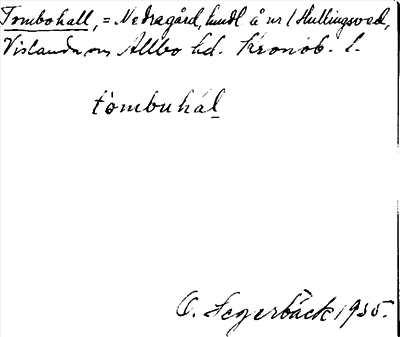 Tombohall, = Nedragård, hmdl å nr 1 Hullingsved,
Vislanda sn Allbo hd. Kronob. l.
tombuhal
C. Segerbäck 1935.